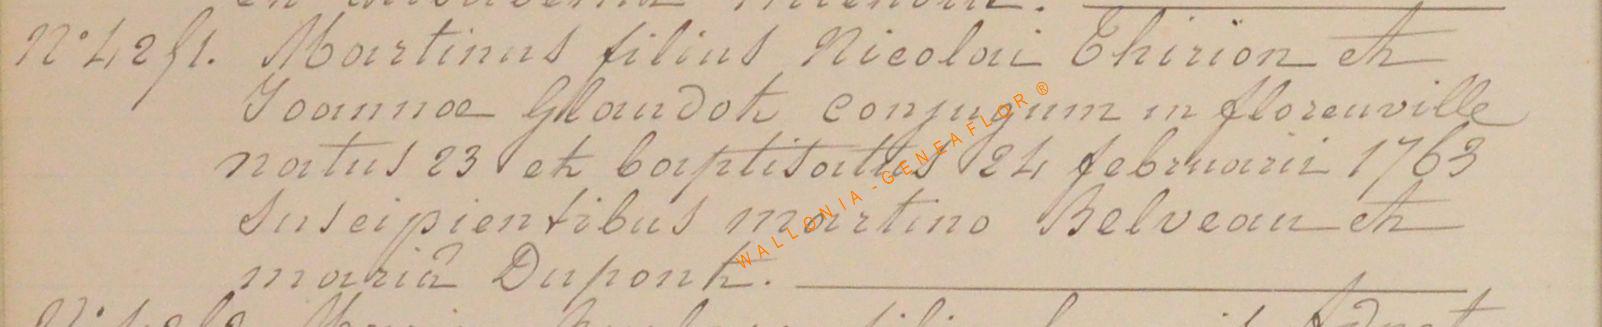 N° 42 fl. Martinus filius Nicolai Thirion et
Joannae Glaudot conjugum in florenville
natus 23 et baptisatus 24 februarii 1763
suscipientibus martino Belveau et
mariâ Dupont.
WALLONIA-GENEAFLOR ®